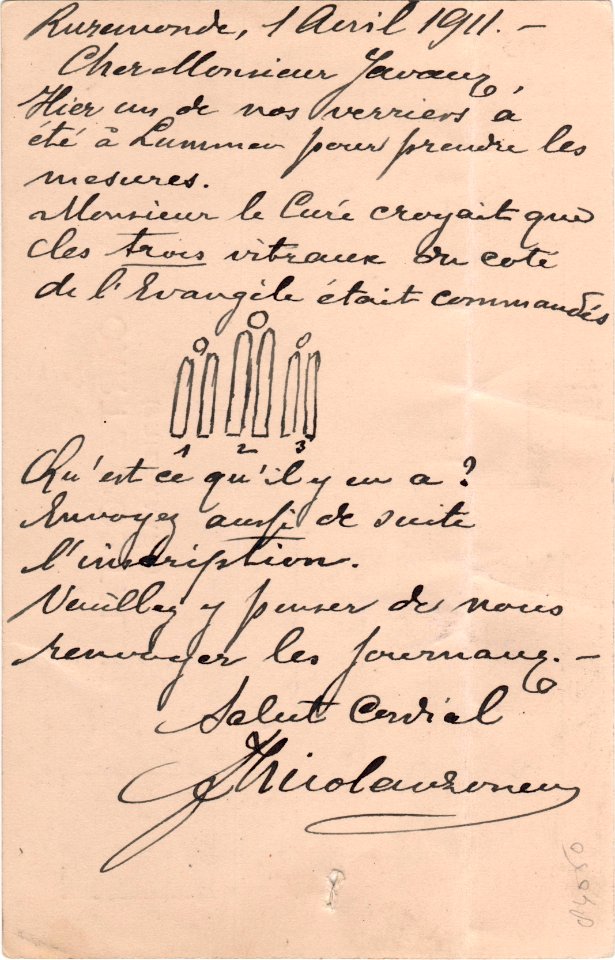 Ruremonde, 1 Avril 1911. -
Cher Monsieur Javaux,
Hier un de nos verriers a
été à Lummen pour prendre les
mesures.
Monsieur le Curé croyait que
des trois vitraux du coté
de l'Evangile était commandés
1 2 3
Qu'est ce qu'il y en a?
Envoyez aussi de suite
l'inscription.
Veuillez y penser de nous
renvoyer les journaux. -
Salut Cordial